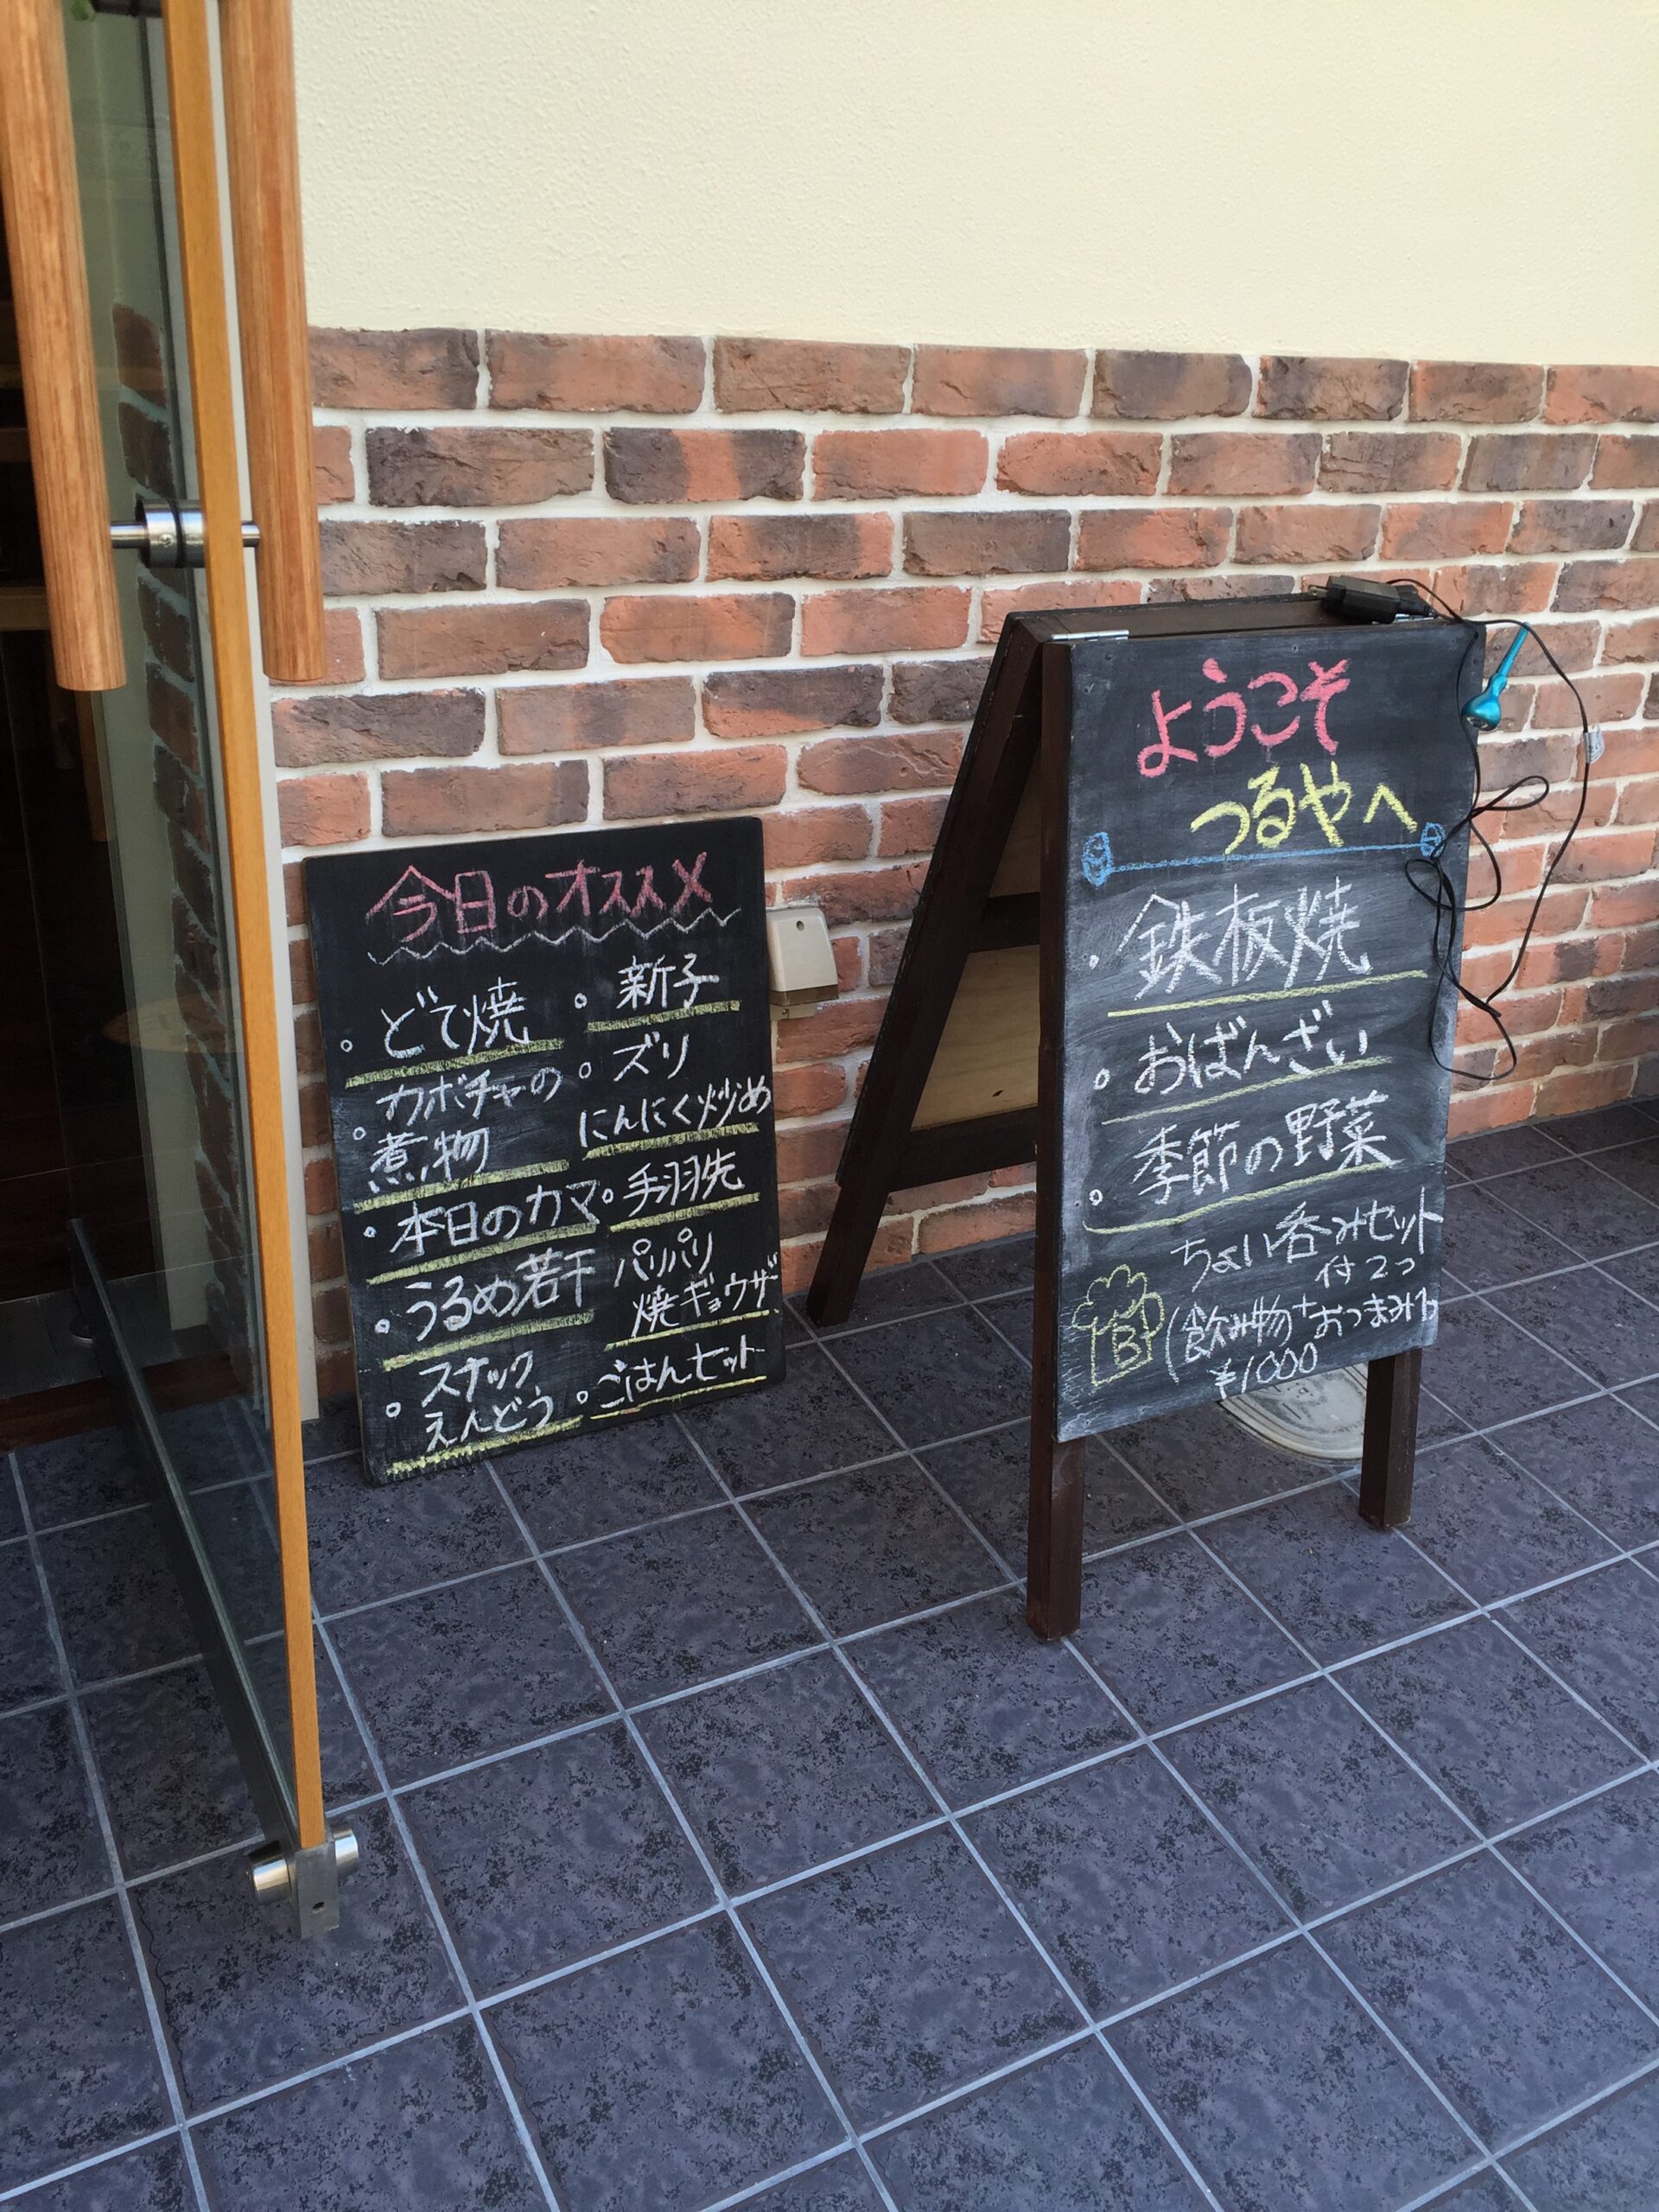 今日のオススメ
。どて焼
。カボチャの
煮物
。本日のカマ
。うるめ若干
。スナック
えんどう
。新子
。ズリ
にんにく炒め
。手羽先
パリパリ
焼ギョウザ
。ごはんセット
ようこそ
つるやへ
。鉄板焼
。おばんざい
。季節の野菜
ちょい呑みセット
付2つ
B
(飲み物+おつまみ
¥1000